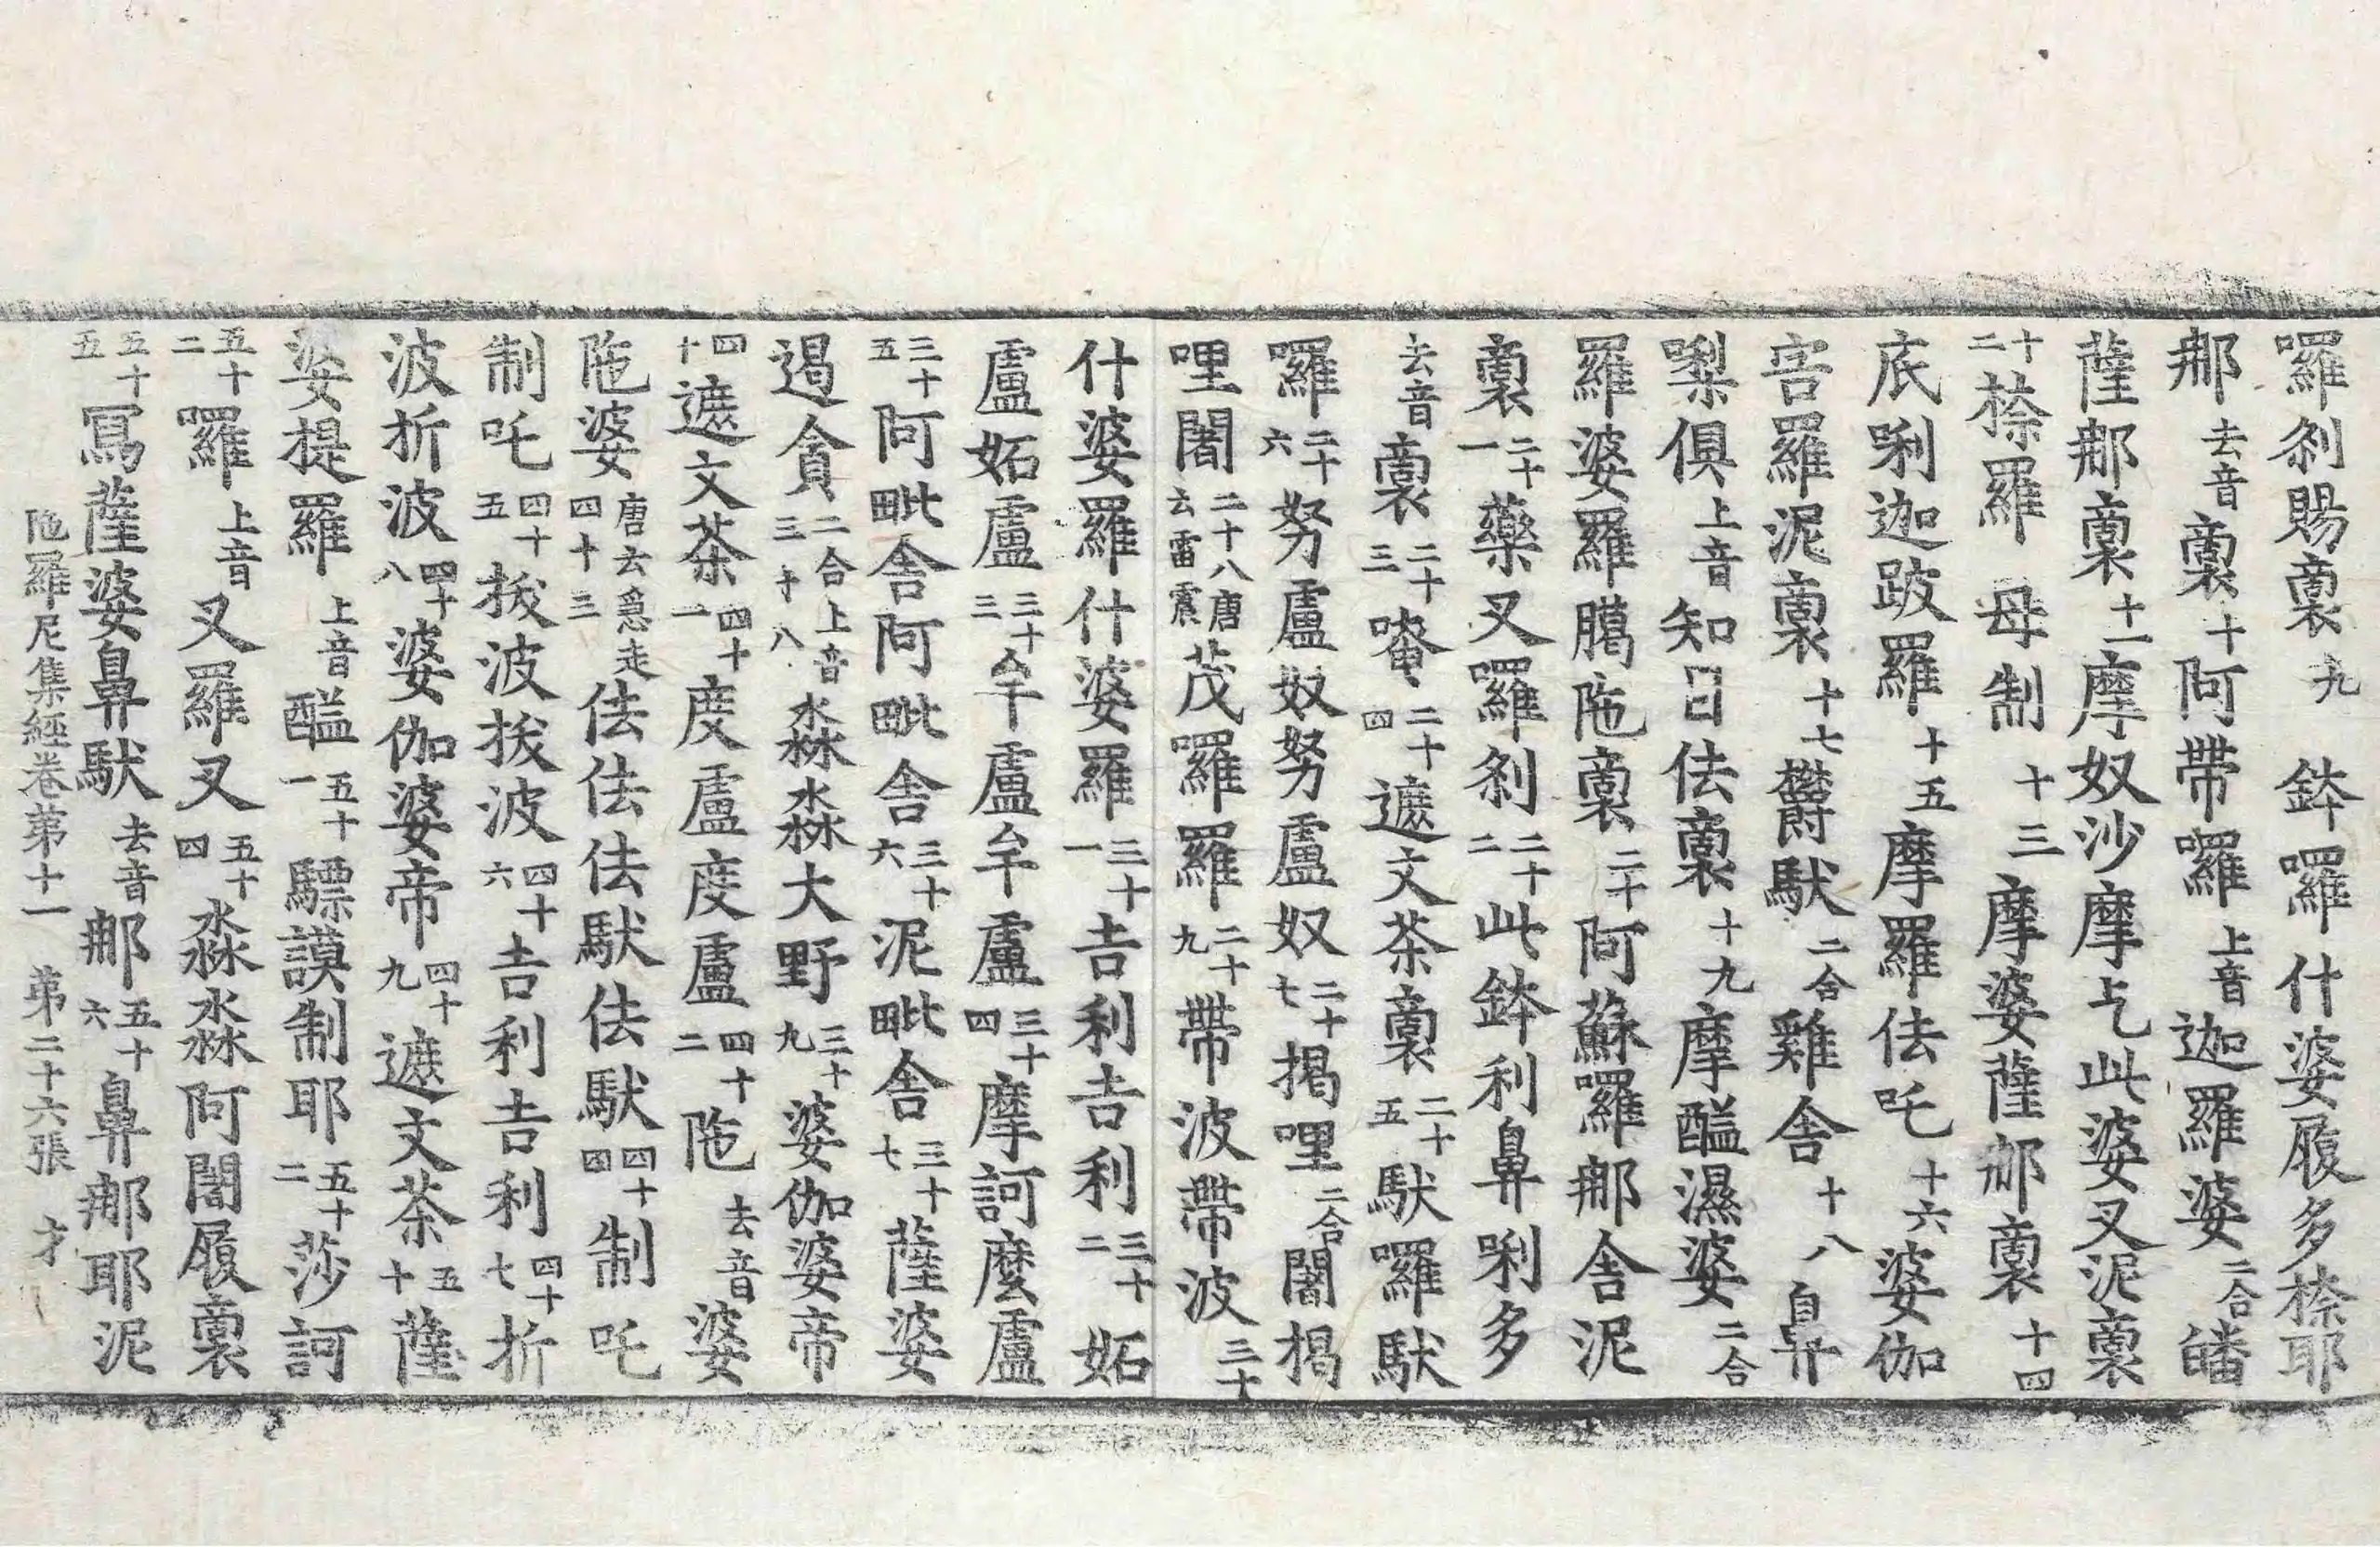 囉剎賜裛九鉢囉什婆履多㮈耶
那去音裛十阿帶囉上音迦羅婆二合皤
薩那裛十一摩奴沙摩乞此婆叉泥裛
十二㮈羅母制十三摩婆薩那裛十四
底唎迦跛羅十五摩羅佉吒十六婆伽
害羅泥裛十七欝馱二合雞舍十八鼻
㗚俱上音知日佉裛十九摩醯濕婆二合
羅婆羅臈陁裛二十阿蘇囉那舍泥
裛二十一藥叉囉剎二十二此鉢利鼻唎多
去音裛二十三唵二十四遮文茶裛二十五馱囉馱
囉二十六努盧奴努盧奴二十七揭哩二合闇揭
哩闇二十八唐云雷震茂羅羅二十九帶波帶波三十
什婆羅什婆羅三十一吉利吉利三十二妬
盧妬盧三十三牟盧牟盧三十四摩訶麼盧
三十五阿毗舍阿毗舍三十六泥毗舍三十七薩婆
遏貪二合上音三十八淼淼大野三十九婆伽婆帝
四十遮文茶四十一度盧度盧四十二陁去音婆
陁婆唐云急走四十三佉佉佉馱佉馱四十四制吒
制吒四十五挨波挨波四十六吉利吉利四十七折
波折波四十八婆伽婆帝四十九遮文茶五十薩
婆提羅上音醯五十一驃謨制耶五十二莎訶
五十二羅上音叉羅叉五十四淼淼阿闇履裛
五十五冩薩婆鼻馱去音那五十六鼻那耶泥
陁羅尼集經卷苐十一 苐二十六張 才